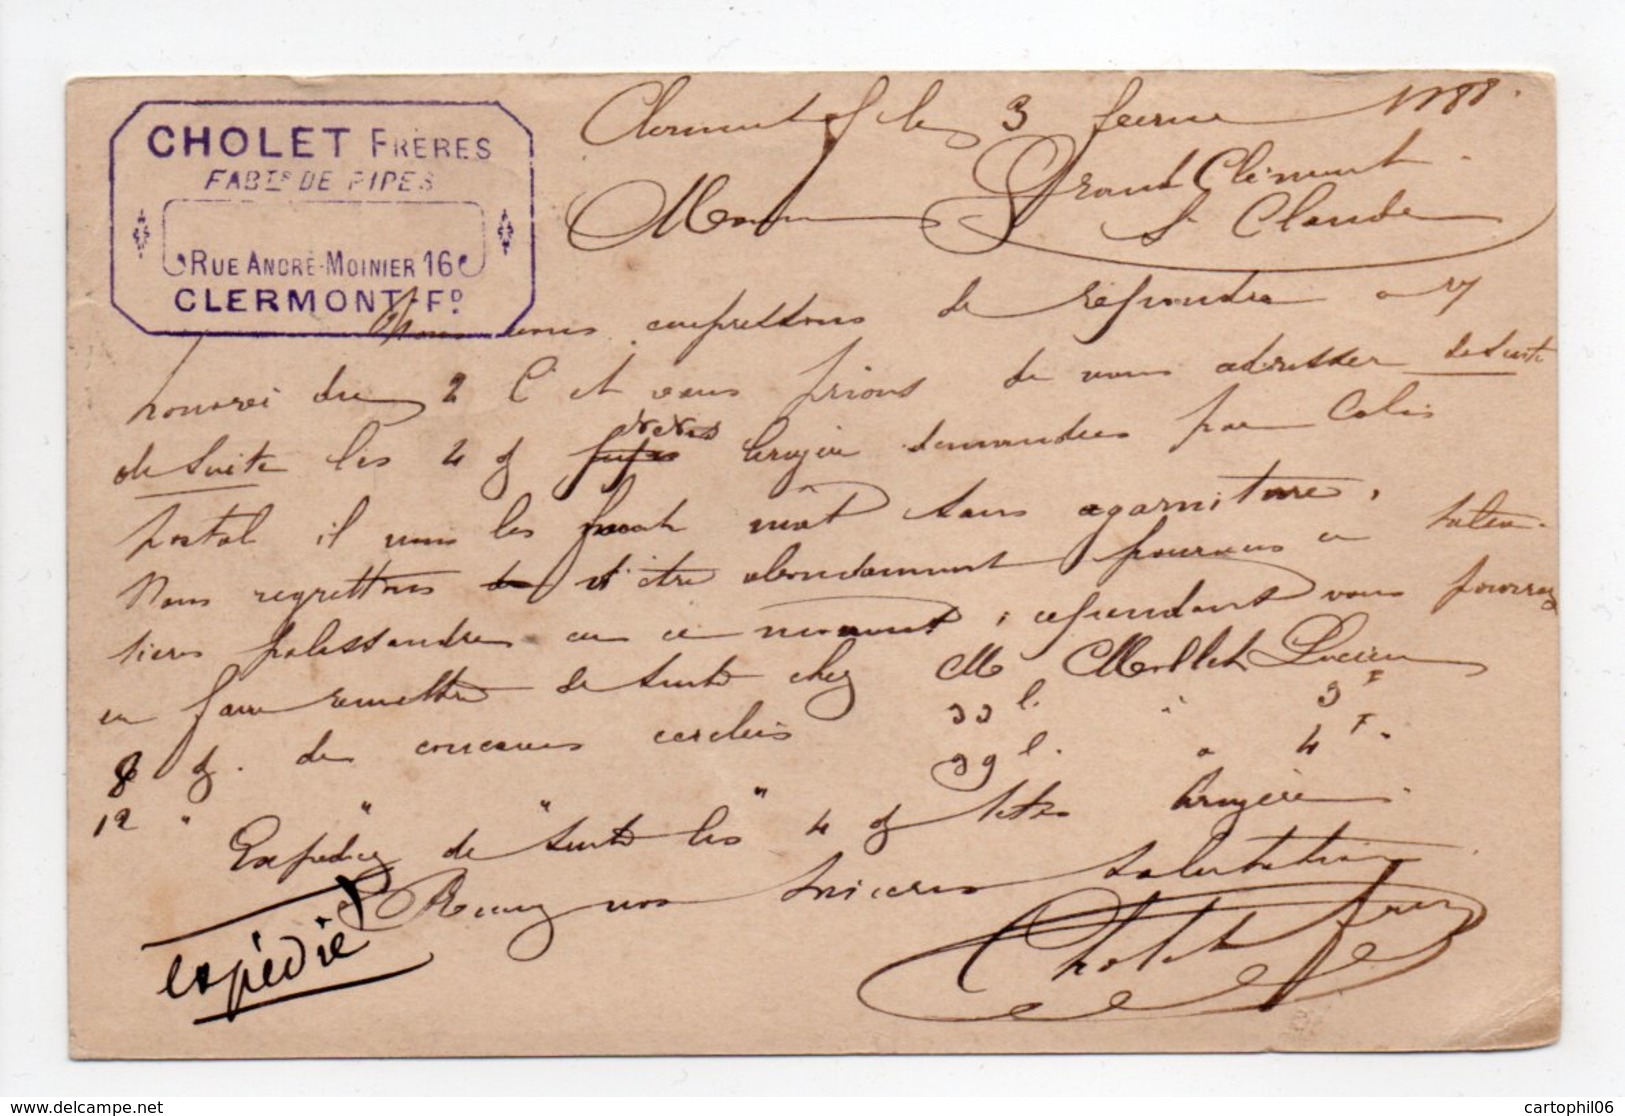 CHOLET FRÈRES
FABTS DE PIPES
RUE ANDRÉ-MOINIER 16
CLERMONT-FD
Clermont f le 3 fevrier 1888.
Monsieur Grand Clément
St Claude
Nous nous empressons de répondre a
honorée du 2 Ct et vous prions de nous adresser de suite
de suite les 4 g bruyère demandées par Colis
postal il nous les faut mât sans garniture,
Nous regrettons d'être abondamment pourvus en
palissandre en ce moment, cependant vous pourrez
en faire remettre de suite chez M Mollet Lucien
8 g. de concaves cerclées 33 l. a 3 F
12 " " " " 39 l. a 4 F.
Expédiez de suite les 4 g têtes bruyère.
Recevez nos sincères salutations
Cholet frères
expédié
cartophil06